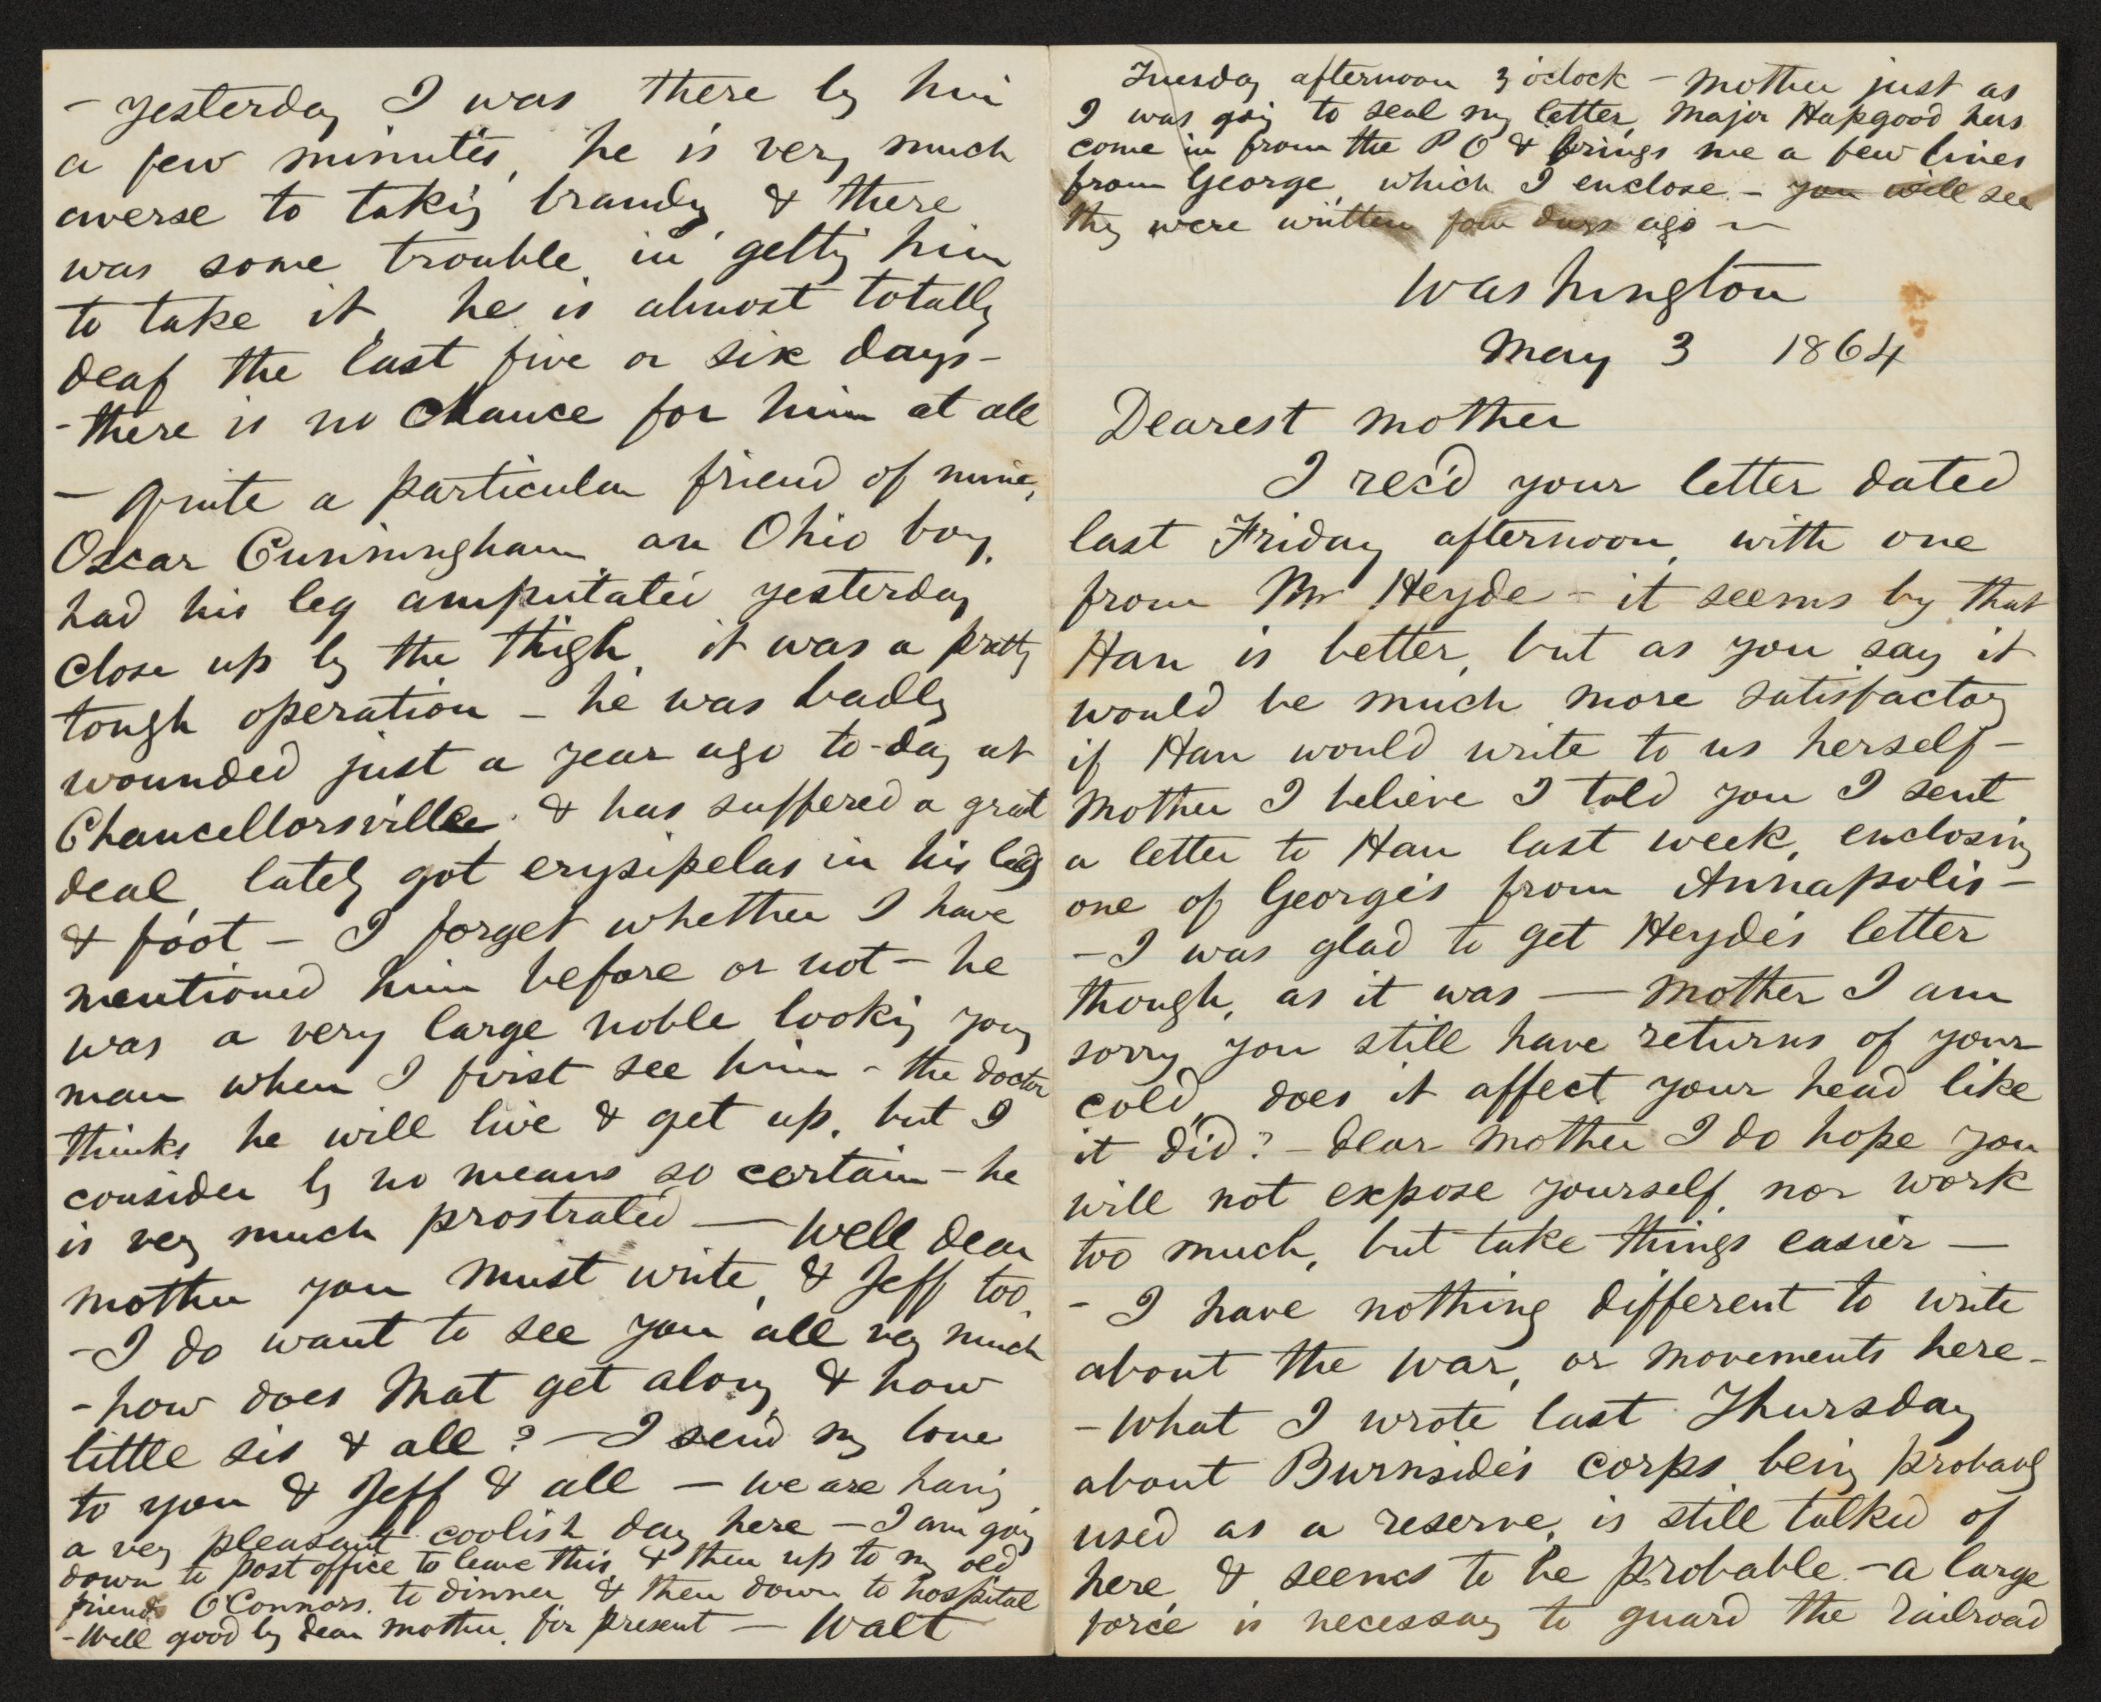 - yesterday I was there by him
a few minutes, he is very much
averse to taking brandy & there
was some trouble in getting him
to take it, he is almost totally
deaf the last five or six days -
- there is no chance for him at all
- Quite a particular friend of mine,
Oscar Cunningham, an Ohio boy,
had his leg amputated yesterday
close up by the thigh, it was a pretty
tough operation - he was badly
wounded just a year ago to-day at
Chancellorsville, & has suffered a great
deal, lately got erysipelas in his leg
& foot - I forget whether I have
mentioned him before or not - he
was a very large noble looking young
man when I first see him - the doctor
thinks he will live & get up, but I
consider by no means so certain - he
is very much prostrated — Well dear
mother you must write, & Jeff too,
- I do want to see you all very much
- how does Mat get along, & how
little sis & all? - I send my love
to you & Jeff & all — we are having
a very pleasant coolish day here - I am going
down to post office to leave this, & then up to my old
friends O'Connors, to dinner, & then down to hospital
- Well good by dear mother, for present — Walt
Tuesday afternoon 3 o'clock - Mother just as
I was going to seal my letter, Major Hapgood has
come in from the P O & brings me a few lines
from George, which I enclose - you will see
they were written four days ago ~
Washington
May 3 1864
Dearest Mother
I rec'd your letter dated
last Friday afternoon, with one
from Mr Heyde - it seems by that
Han is better, but as you say it
would be much more satisfactory
if Han would write to us herself -
Mother I believe I told you I sent
a letter to Han last week, enclosing
one of George's from Annapolis -
- I was glad to get Heyde's letter
though, as it was — Mother I am
sorry you still have returns of your
cold, does it affect your head like
it did? - Dear Mother I do hope you
will not expose yourself, nor work
too much, but take things easier —
- I have nothing different to write
about the war, or movements here -
- What I wrote last Thursday
about Burnside's corps, being probably
used as a reserve, is still talked of
here, & seems to be probable - a large
force is necessary to guard the railroad